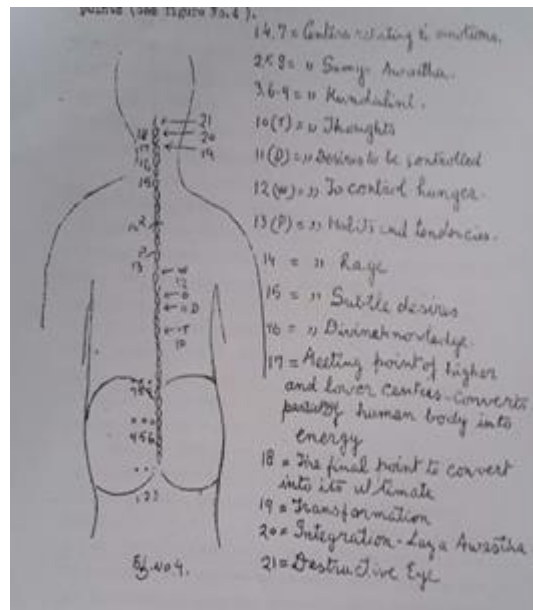 points (See Figure No.4).
1.4.7 = Centers relating to emotions.
2.5.8 = " Samya Awastha.
3.6.9 = " Kundalini.
10(T) = " Thoughts
11(D) = " Desires to be controlled
12(W) = " To control hunger.
13(P) = " Habits and tendencies.
14 = " Rage
15 = " Subtle desires
16 = " Divine knowledge.
17 = Meeting point of higher
and lower centres - converts
of human body into
energy
18 = The final point to convert
into its ultimate
19 = Transformation
20 = Integration - Laya Awastha
21 = Destructive Eye
21
18
20
17
19
16
15
13
D
T
10
456
123
No 4.